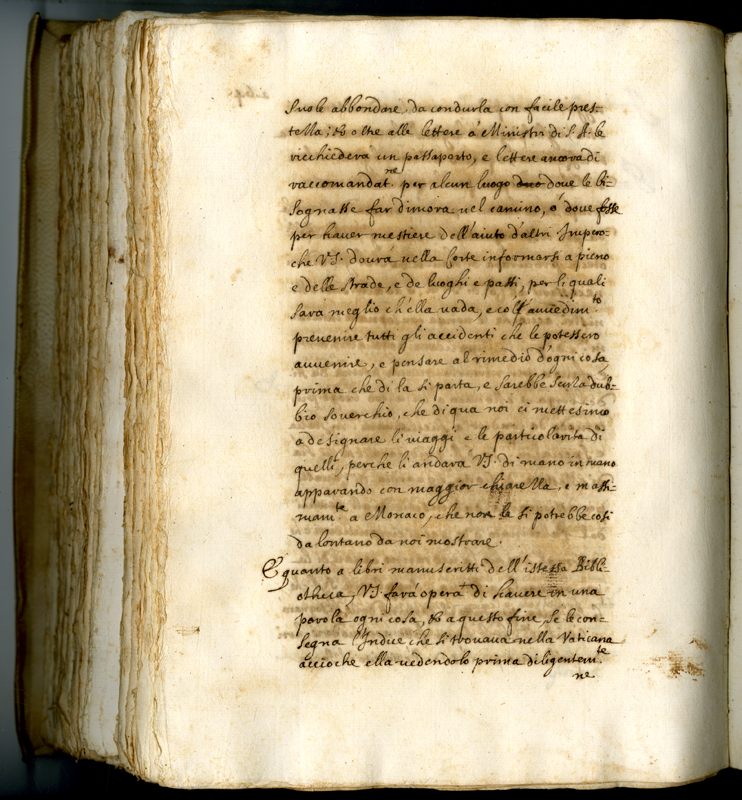 suole abbondare da condurla con facile pres-
tella; & oltre alle lettere à Ministri di S. A. le
richiederà un passaporto, e lettere ancora di
raccomandat.ne per alcun luogo dove le bi-
sognasse far dimora nel camino, ò dove fosse
per haver mestiere dell'aiuto d'altri Impero-
che VS. dovra nella Corte informarsi a pieno
e delle strade, e de luoghi e passi, per li quali
sarà meglio ch'ella vada, e coll' avvedim.to
prevenire tutti gli accidenti che le potessero
avvenire, e pensare al rimedio d'ogni cosa,
prima che di la si parta, e sarebbe senza dub-
bio soverchio, che di qua noi ci mettessimo
a designare li viaggi e le particolarità di
quelli, perche li andarà VS. di mano in mano
apparando con maggior chiarezza, e massi-
mam.te a Monaco, che non le si potrebbe così
da lontano da noi mostrare.
E quanto a libri manuscritti dell'istessa Bibli-
otheca, VS. farà opera di havere in una
parola ogni cosa, & a questo fine, se le con-
segna l'Indice che si trovava nella Vaticana
accioche ella vedendolo prima diligentem.te
ne